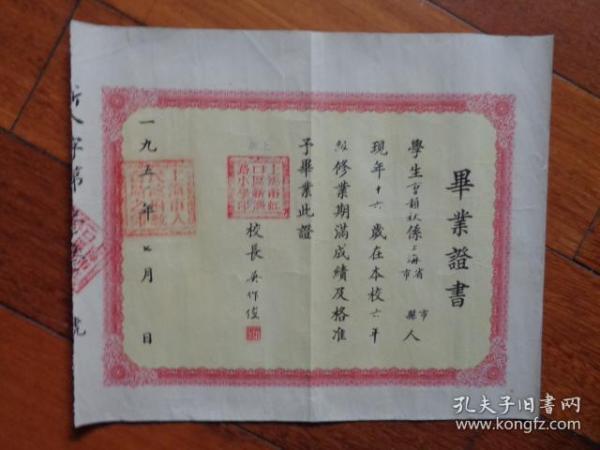 畢業證書
學生曹頴秋係上海省市縣市人
現年十六歲在本校六年
級修業期滿成績及格准
予畢業此證
校長 吳作俊
上海市虹口區新滬路小學印
一九五年七月日
新人字第號
孔夫子旧书网
www.kongfz.com